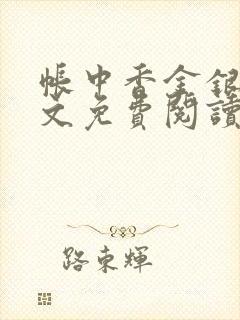 帳中香金銀
文免費閱讀
路東輝